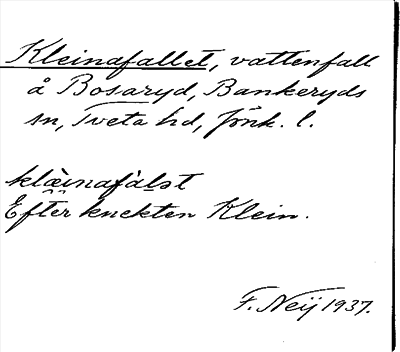 Kleinafallet, vattenfall
å Bosaryd, Bankeryds
sn, Tveta hd, Jönk. l.
klä̀inafàlət
Efter knekten Klein.
F. Neij 1937.